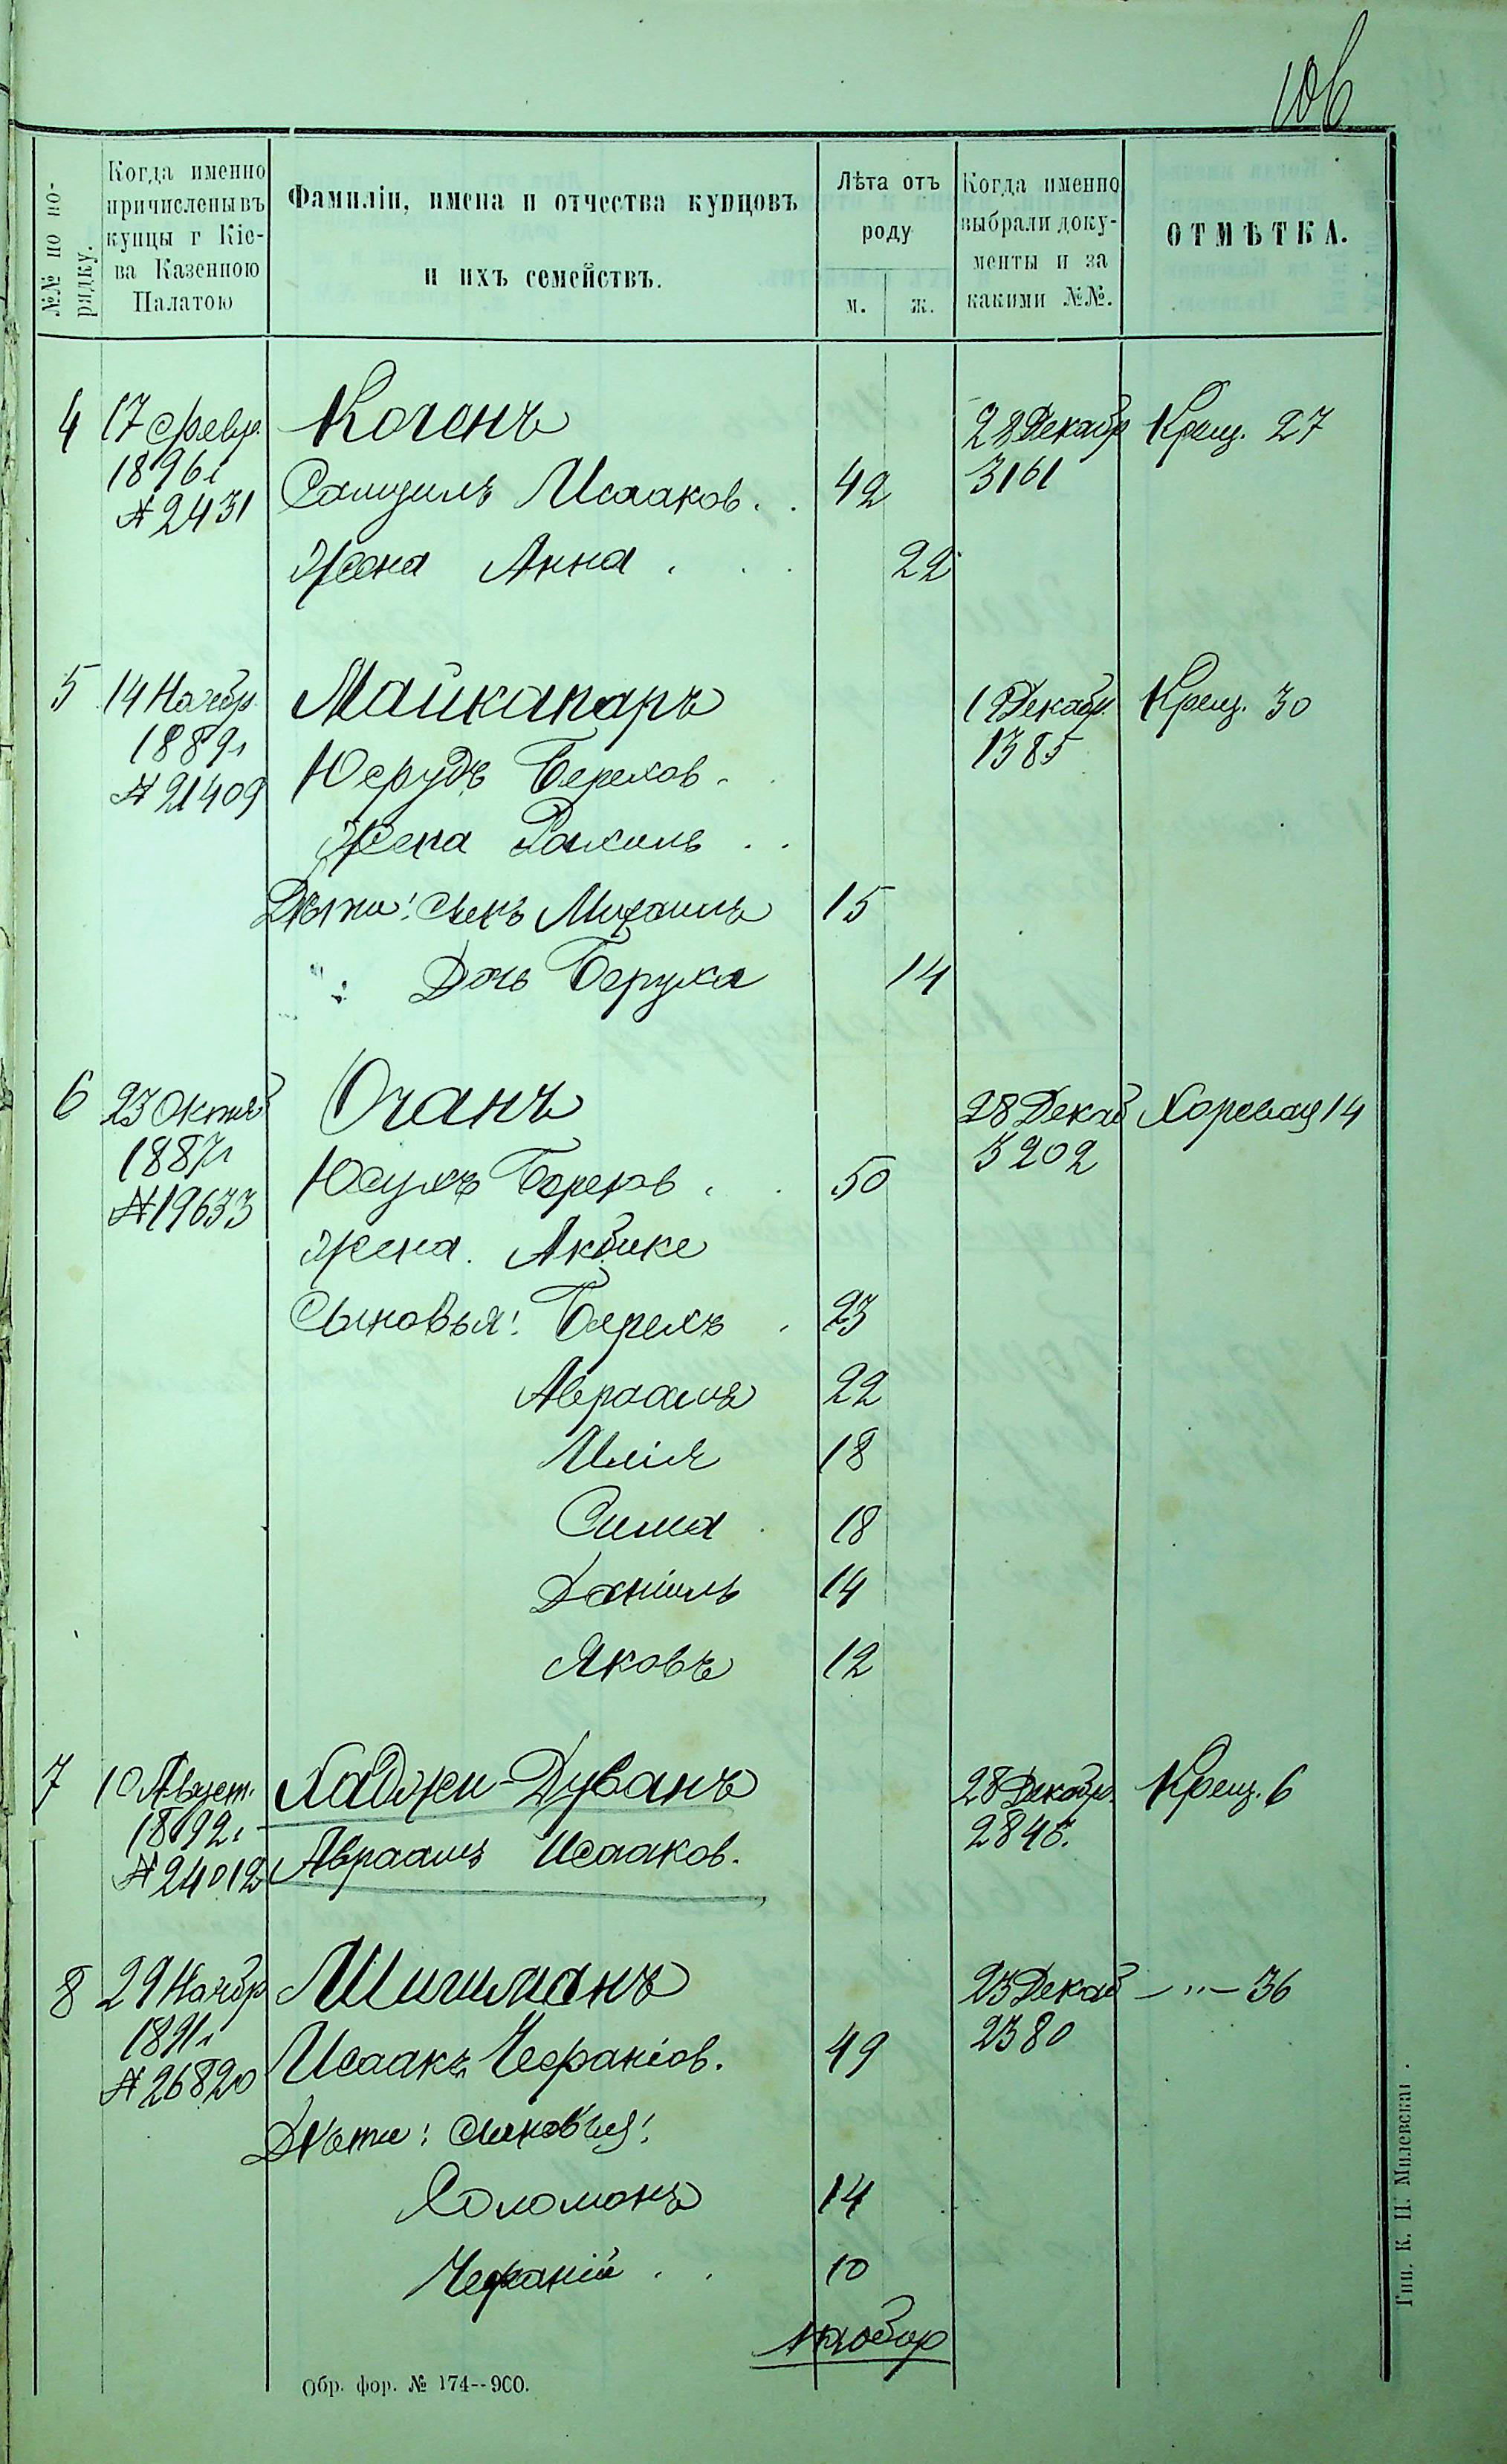 106
№№ по по-
рядку.
Когда именно
причислены въ
купцы г Кіе-
ва Казенною
Палатою
Фамиліи, имена и отчества купцовъ
и ихъ семействъ.
Лѣта отъ
роду
м. ж.
Когда именно
выбрали доку-
менты и за
какими №№.
ОТМѢТКА.
4 17 Февр. Когенъ 28 Декабр Крещ. 27
1896 г 3161
№ 2431 Самуилъ Исааков. 42
Жена Анна 22
5 14 Ноябр. Майкапаръ 1 Декабр. Крещ. 30
1889 г 1385
№ 21409 Юсуфъ Берахов.
Жена Рахиль
Дѣти: сынъ Михаилъ 15
" Дочь Беруха 14
6 23 Октяб Очанъ 28 Декаб Хоревая 14
1887 г 3202
№ 19633 Юсуфъ 50
Жена Акбике
Сыновья: Берахъ 23
Авраамъ 22
Илія 18
Сима 18
Даніилъ 14
Яковъ 12
7 10 Август. Хаджи-Дуванъ 28 Декабр. Крещ. 6
1892 г 2845.
№ 24012 Авраамъ Исааков.
8 29 Ноябр Шишманъ 23 Декаб — " — 36
1891 г 2380
№ 26820 Исаакъ Чефаніов. 49
Дѣти: сыновья:
Соломонъ 14
Чефаній 10
Обр. фор. № 174--900.
Тип. К. П. Милевскаг.